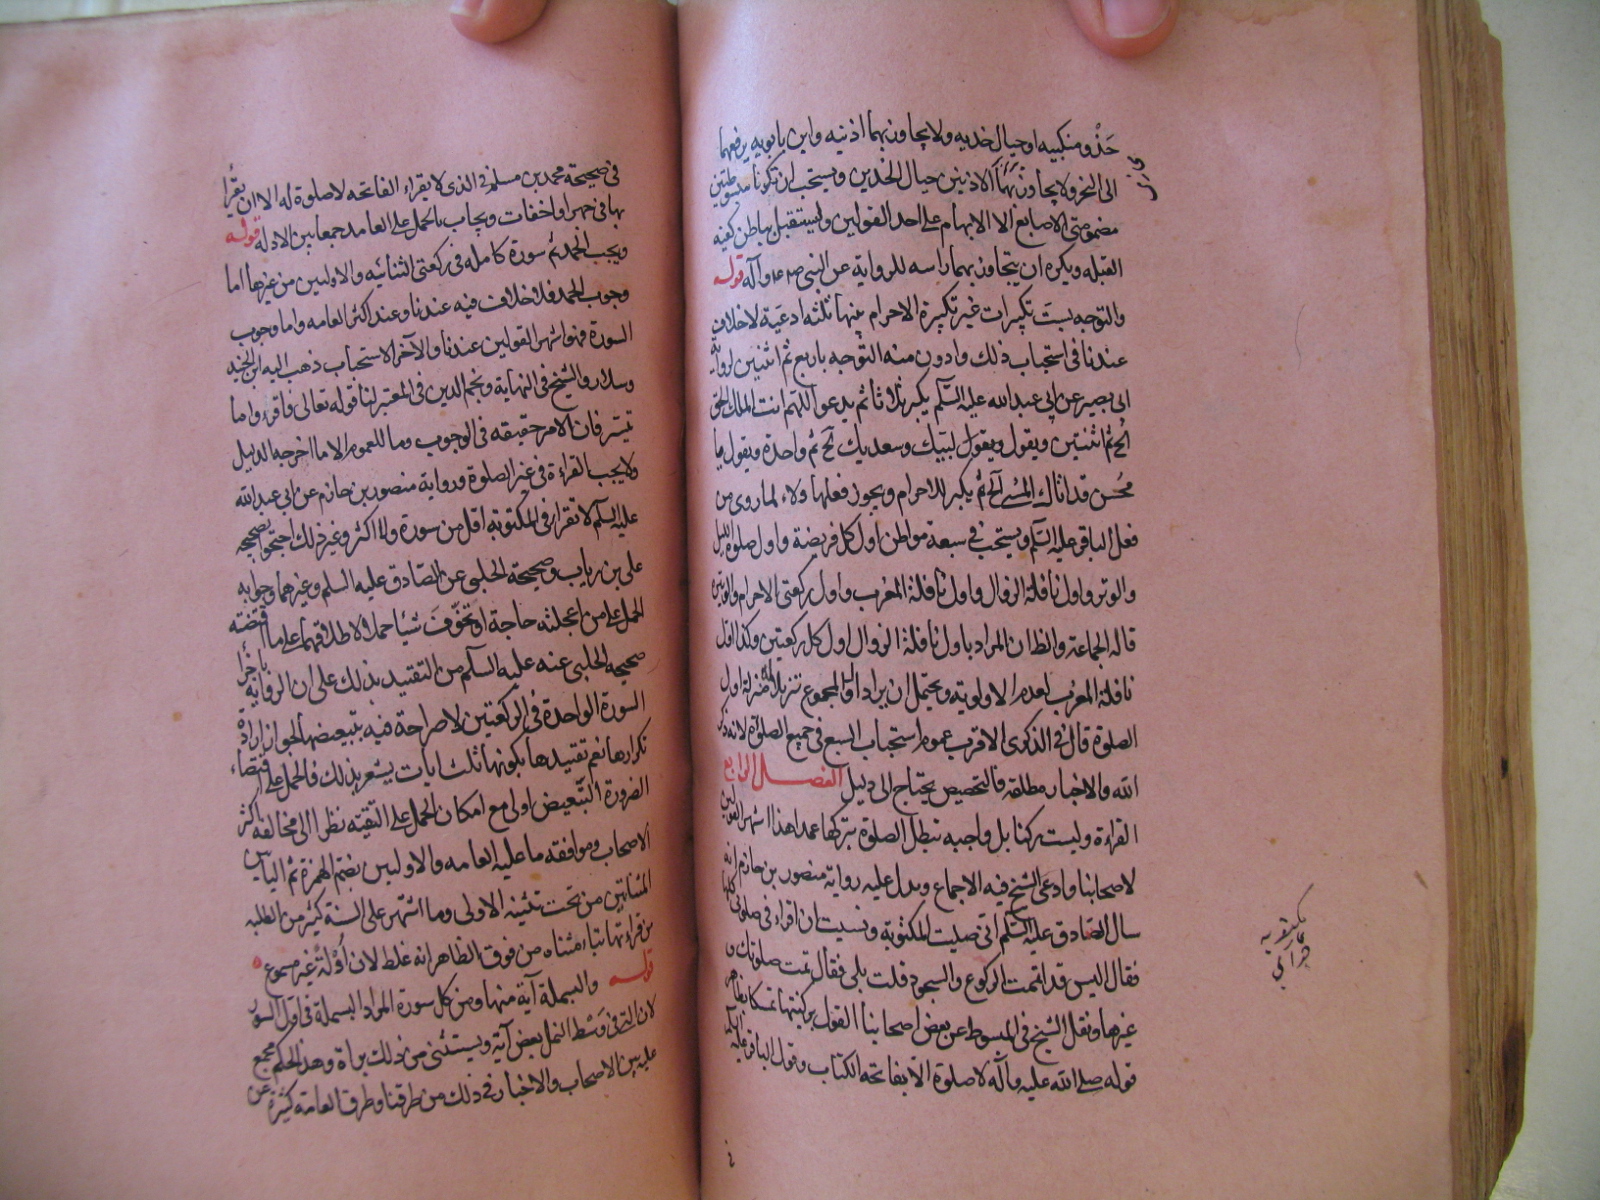 حَذْو منكبيه او حيال خديه ولا يجاوز بهما اذنيه وابن بابويه يرفعهما
الى النحر ولا يجاوز بهما الاذنين حيال الخدين ويستحب ان تكونا مبسوطتين
مضمومتى الاصابع الا الابهام على احد القولين وليستقبل بباطن كفيه
القبله ويكره ان يتجاوز بهما راسه للرواية عن النبى ص وآله قوله
والتوجه بست تكبيرات غير تكبيرة الاحرام بينها ثلثة ادعية لاخلاف
عندنا فى استحباب ذلك وادون منه التوجه باربع ثم اثنتين لرواية
ابى بصير عن ابى عبدالله عليه السلم يكبر ثلاثا ثم يدعو اللهم انت الملك الحق
الخ ثم اثنتين ويقول ويقول لبيك وسعديك الخ ثم واحدة ويقول يا
محسن قد اتاك المسئ الخ ثم يكبر للاحرام ويجوز فعلها ولاء لما روى من
فعل الباقر عليه السلم ويستحب فى سبعة مواطن اول كل فريضة واول صلوة الليل
والوتر واول نافلة الزوال واول نافلة المغرب واول ركعتى الاحرام والوتيرة
قاله الجماعة والظ ان المراد باول نافلة الزوال اول كل ركعتين وكذا اول
نافلة المغرب لعدم الاولوية ويحتمل ان يراد اول المجموع تنزيلا له منزلة اول
الصلوة قال فى الذكرى الاقرب عموم استحباب السبع فى جميع الصلوة لانه ذكر
الله والاخبار مطلقه فالتخصيص يحتاج الى دليل الفصل الرابع
القراءة وليست ركنا بل واجبه تبطل الصلوة بتركها عمدا هذا اشهر القولين
لاصحابنا وادعى الشيخ فيه الاجماع ويدل عليه رواية منصور بن حازم انه
سال الصادق عليه السلم انى صليت المكتوبة ونسيت ان اقراء فى صلوتى كلها
فقال اليس قد اتممت الركوع والسجود قلت بلى فقال تمت صلوتك و
غيرها ونقل الشيخ فى المبسوط عن بعض اصحابنا القول بركنيتها تمسكا بظاهر
قوله صلى الله عليه وآله لا صلوة الا بفاتحة الكتاب وقول الباقر عليه السلم
فى صحيحة محمد بن مسلم فى الذى لا يقراء الفاتحه لا صلوة له الا ان يقرأ
بها فى جهر او اخفات ويجاب بالحمل على العامد جمعا بين الادلة قوله
ويجب الحمد ثم سورة كامله فى ركعتى الثنائيه والاوليين من غيرها اما
وجوب الحمد فلا خلاف فيه عندنا وعند اكثر العامه واما وجوب
السورة فهو اشهر القولين عندنا والآخر الاستحباب ذهب اليه ابن الجنيد
وسلار والشيخ فى النهاية ونجم الدين فى المعتبر لنا قوله تعالى فاقرءوا ما
تيسر فان الامر حقيقه فى الوجوب وما للعموم الا ما اخرجه الدليل
ولا يجب القراءة فى غير الصلوة ورواية منصور بن حازم عن ابى عبدالله
عليه السلم لا تقرأ فى المكتوبة اقل من سورة ولا اكثر وغير ذلك احتجوا بصحيحه
على بن رياب وصحيحة الحلبى عن الصادق عليه السلم وغيرهما وجوابه
الحمل على من اعجلته حاجة او تخوّف شيئا حملا لاطلاقهما على ما اقتضته
صحيحه الحلبى عنه عليه السلم من التقييد بذلك على ان الرواية باجزاء
السورة الواحدة فى الركعتين لا صراحة فيه بتبعيضها لجواز ارادة
تكرارها نعم تقييدها بكونها ثلث ايات يشعر بذلك فالحمل على اقتضاء
الضرورة التبعيض اولى مع امكان الحمل على التقيه نظرا الى مخالفة اكثر
الاصحاب وموافقته ما عليه العامه والاوليين بضم الهمزة ثم اليائين
المثناتين من تحت تثنية الاولى وما اشتهر على السنة كثير من الطلبه
من قراءتها بتاء مثناه من فوق الظاهر انه غلط لان اُوْلَةٌ غير مسموع
قوله والبسملة آية منها ومن كل سورة المراد البسملة فى اول السور
لان التى فى وَسْط النمل بعض آية ويستثنى من ذلك براة وهذا الحكم مجمع
عليه بين الاصحاب والاخبار فى ذلك من طرقنا وطرق العامة كثيرة عن